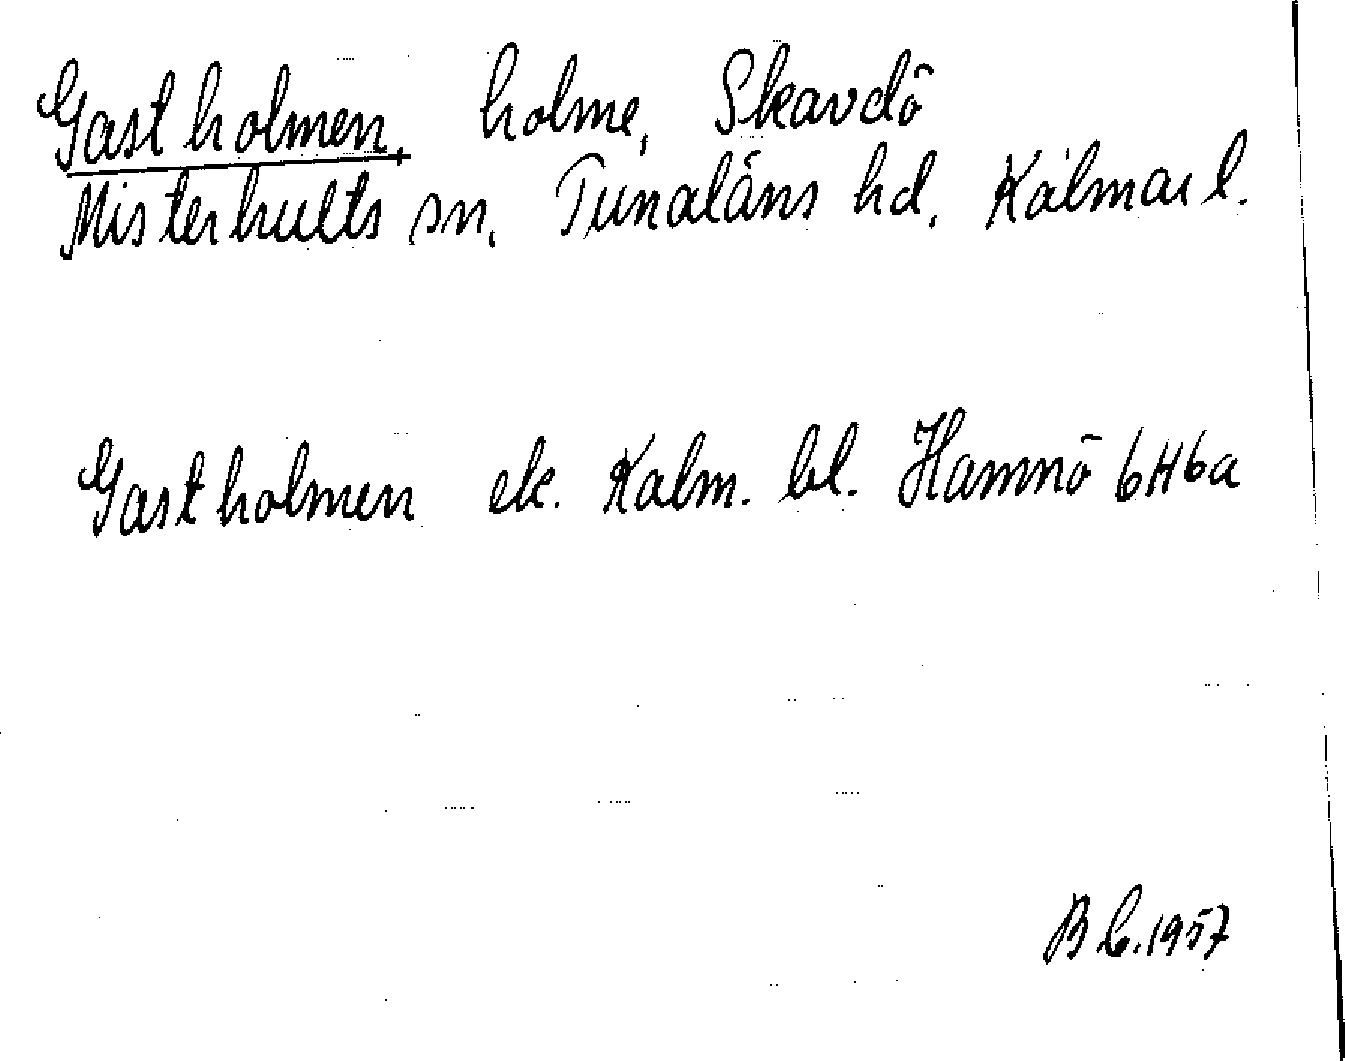 Gastholmen, holme, Skavdö
Misterhults sn. Tunaläns hd. Kalmar l.
Gastholmen ek. Kalm. bl. Hamnö 6H6a
1957